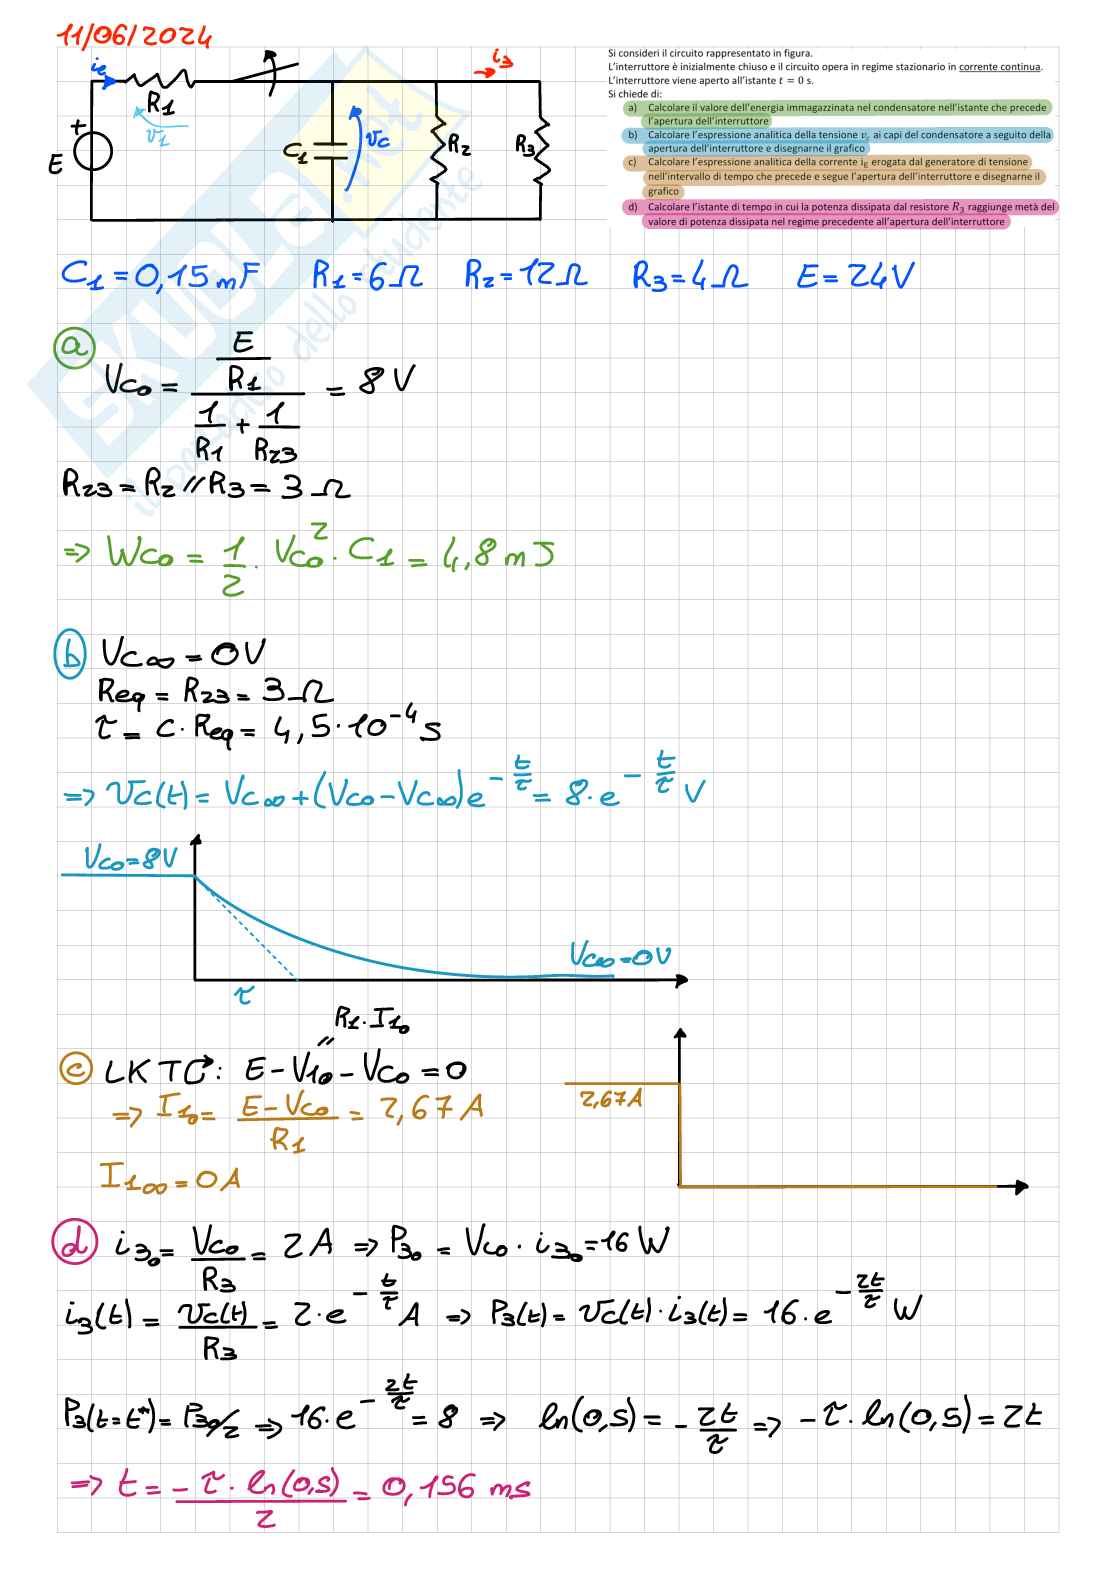 11/06/2024
Si consideri il circuito rappresentato in figura.
L'interruttore è inizialmente chiuso e il circuito opera in regime stazionario in corrente continua.
L'interruttore viene aperto all'istante t = 0 s.
Si chiede di:
a) Calcolare il valore dell'energia immagazzinata nel condensatore nell'istante che precede
l'apertura dell'interruttore
b) Calcolare l'espressione analitica della tensione v_c ai capi del condensatore a seguito della
apertura dell'interruttore e disegnarne il grafico
c) Calcolare l'espressione analitica della corrente i_E erogata dal generatore di tensione
nell'intervallo di tempo che precede e segue l'apertura dell'interruttore e disegnarne il
grafico
d) Calcolare l'istante di tempo in cui la potenza dissipata dal resistore R_3 raggiunge metà del
valore di potenza dissipata nel regime precedente all'apertura dell'interruttore
ie R1 v1 + E C1 vc R2 R3 i3
SKUOLA.net
il paradiso dello studente
C1 = 0,15 mF R1 = 6 Ω R2 = 12 Ω R3 = 4 Ω E = 24 V
a) Vco = (E/R1) / (1/R1 + 1/R23) = 8 V
R23 = R2 // R3 = 3 Ω
=> Wco = 1/2 · Vco² · C1 = 4,8 mJ
b) Vc∞ = 0 V
Req = R23 = 3 Ω
τ = C · Req = 4,5 · 10⁻⁴ s
=> vc(t) = Vc∞ + (Vco - Vc∞) e^(-t/τ) = 8 · e^(-t/τ) V
Vco = 8 V
Vc∞ = 0 V
τ
R1 · I1o
"
c) LKT: E - V1o - Vco = 0
=> I1o = (E - Vco)/R1 = 2,67 A
2,67 A
I1∞ = 0 A
d) i3o = Vco/R3 = 2 A => P3o = Vco · i3o = 16 W
i3(t) = vc(t)/R3 = 2 · e^(-t/τ) A => P3(t) = vc(t) · i3(t) = 16 · e^(-2t/τ) W
P3(t = t*) = P3o/2 => 16 · e^(-2t/τ) = 8 => ln(0,5) = -2t/τ => -τ · ln(0,5) = 2t
=> t = -τ · ln(0,5)/2 = 0,156 ms